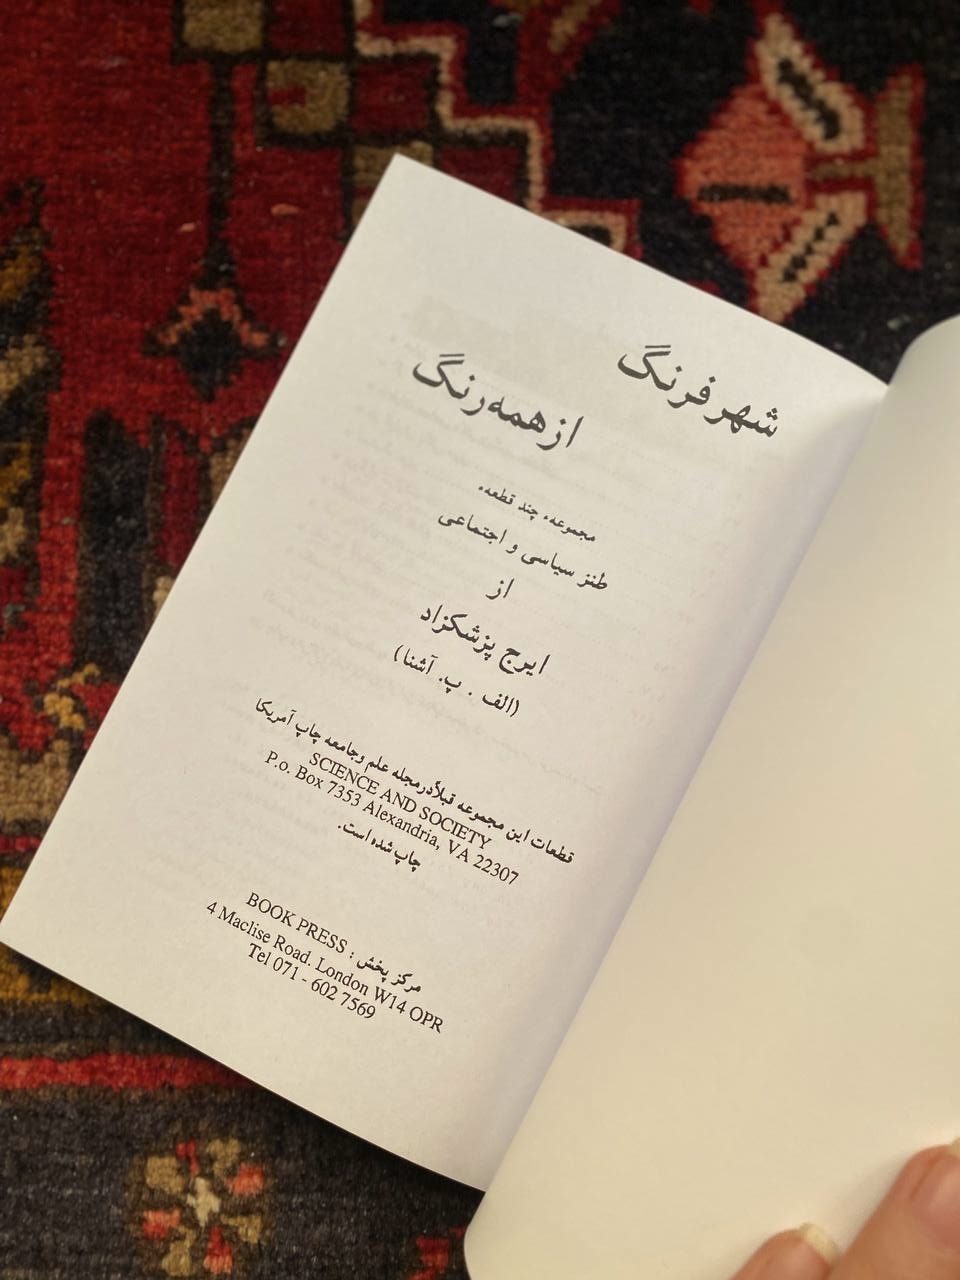 شهر فرنگ
از همه رنگ
مجموعهء چند قطعهء
طنز سیاسی و اجتماعی
از
ایرج پزشکزاد
(الف . پ. آشنا)
قطعات این مجموعه قبلاً درمجله علم وجامعه چاپ آمریکا
SCIENCE AND SOCIETY
P.o. Box 7353 Alexandria, VA 22307
چاپ شده است.
مرکز پخش : BOOK PRESS
4 Maclise Road. London W14 OPR
Tel 071 - 602 7569